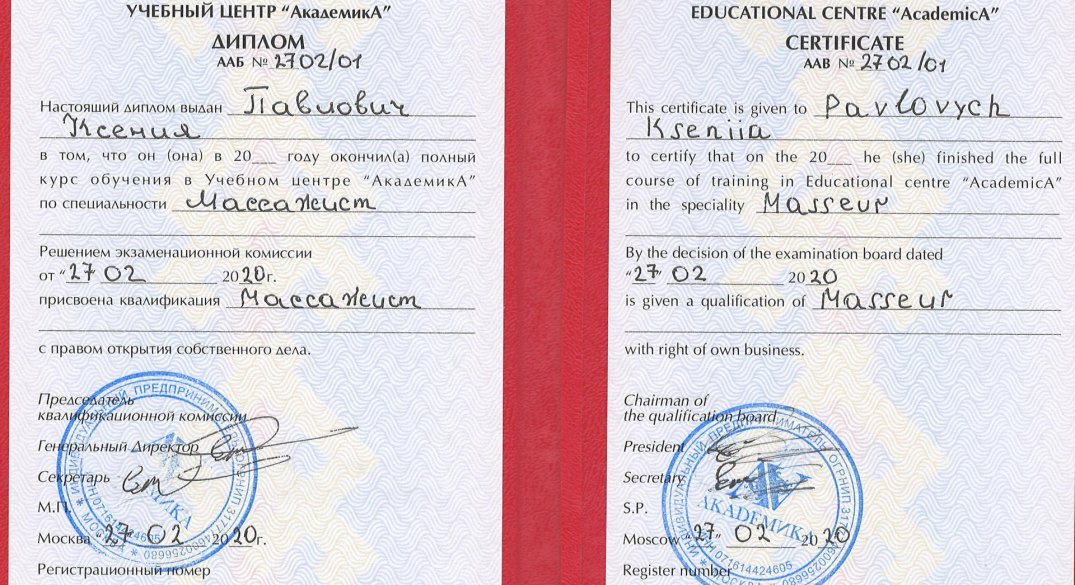 УЧЕБНЫЙ ЦЕНТР “АкадемикА”
ДИПЛОМ
ААБ № 2702/01
Настоящий диплом выдан Павлович
Ксения
в том, что он (она) в 20___ году окончил(а) полный
курс обучения в Учебном центре “АкадемикА”
по специальности Массажист
Решением экзаменационной комиссии
от “27 02 2020г.
присвоена квалификация Массажист
с правом открытия собственного дела.
Председатель
квалификационной комиссии
Генеральный Директор
Секретарь
М.П.
Москва “27” 02 2020г.
Регистрационный номер
EDUCATIONAL CENTRE “AcademicA”
CERTIFICATE
AAB № 2702/01
This certificate is given to Pavlovych
Kseniia
to certify that on the 20___ he (she) finished the full
course of training in Educational centre “AcademicA”
in the speciality Masseur
By the decision of the examination board dated
“27” 02 2020
is given a qualification of Masseur
with right of own business.
Chairman of
the qualification board
President
Secretary
S.P.
Moscow “27” 02 2020
Register number
ИНДИВИДУАЛЬНЫЙ ПРЕДПРИНИМАТЕЛЬ
АКАДЕМИКА
071614424605
МОСКВА